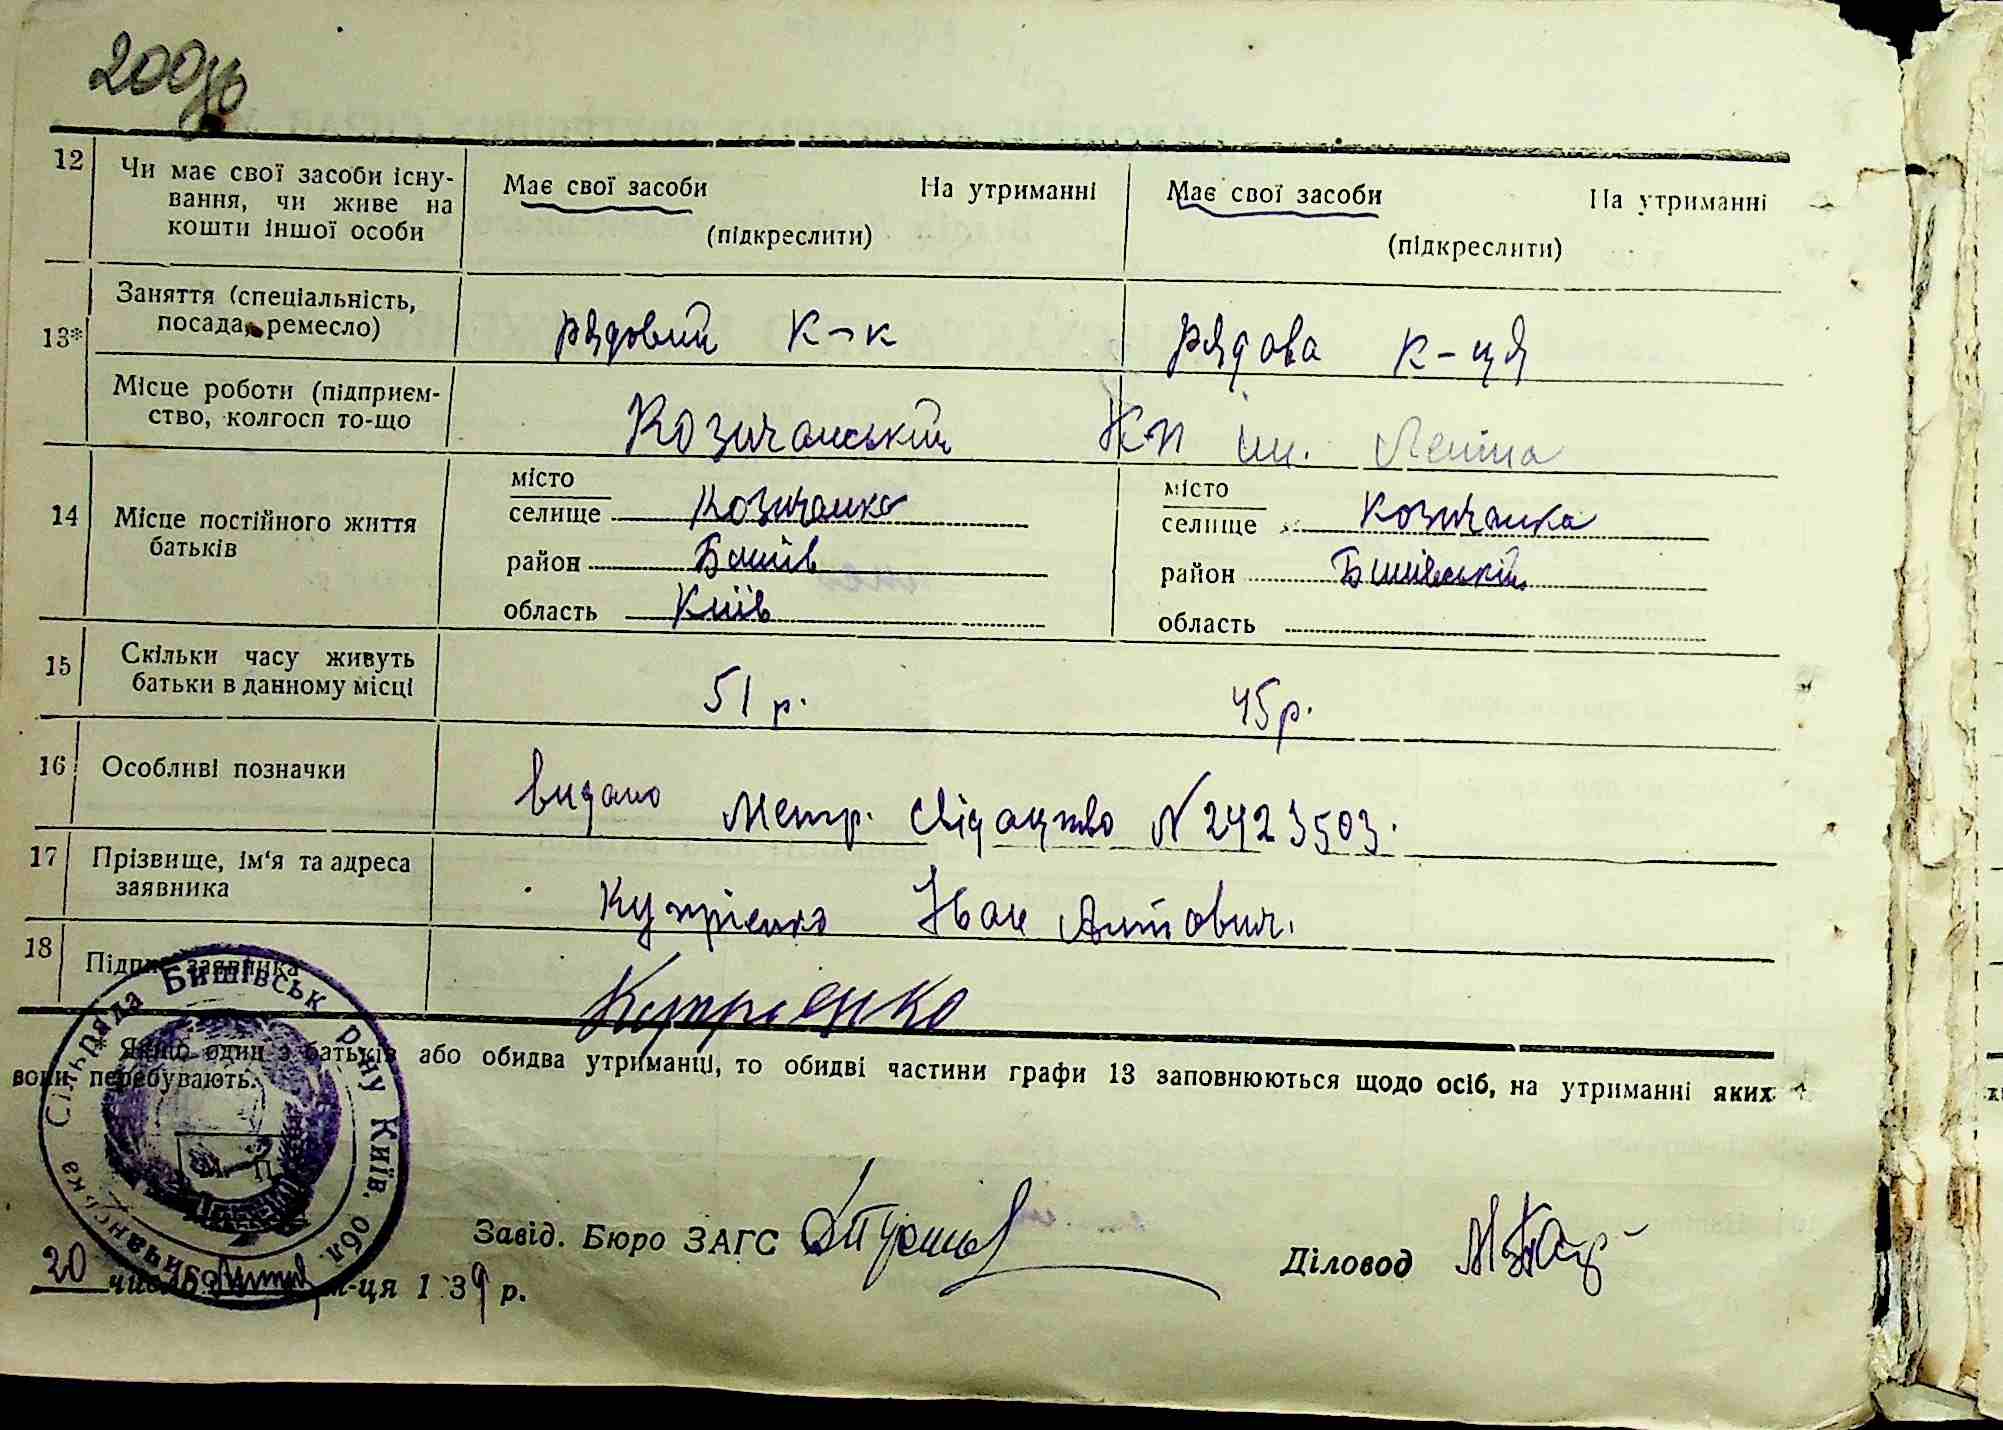 200зв
12 Чи має свої засоби існу-
вання, чи живе на
кошти іншої особи
Має свої засоби На утриманні
(підкреслити)
Має свої засоби На утриманні
(підкреслити)
13* Заняття (спеціальність,
посада, ремесло)
рядовий к-к
Рядова к-ця
Місце роботи (підприєм-
ство, колгосп то-що
Козичанський КП ім. Леніна
14 Місце постійного життя
батьків
місто
селище Козичанка
район Бишів
область Київ
місто
селище Козичанка
район Бишівський
область
15 Скільки часу живуть
батьки в данному місці
51 р. 45 р.
16 Особливі позначки
видано Метр. свідоцтво N 2423503.
17 Прізвище, ім'я та адреса
заявника
Купрієнко Іван Антович.
18 Підпис заявника
Купрієнко
* Якщо один з батьків або обидва утриманці, то обидві частини графи 13 заповнюються щодо осіб, на утриманні яких
вони перебувають.
Козичанська Сільрада Бишівськ р-ну Київ. обл.
М. П.
Завід. Бюро ЗАГС
Діловод
20 числа м-ця 139 р.